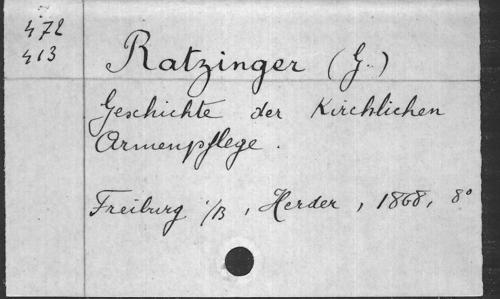 472
413
Ratzinger (G..)
Geschichte der Kirchlichen
Armenpflege.
Freiburg i/B, Herder, 1868, 8°